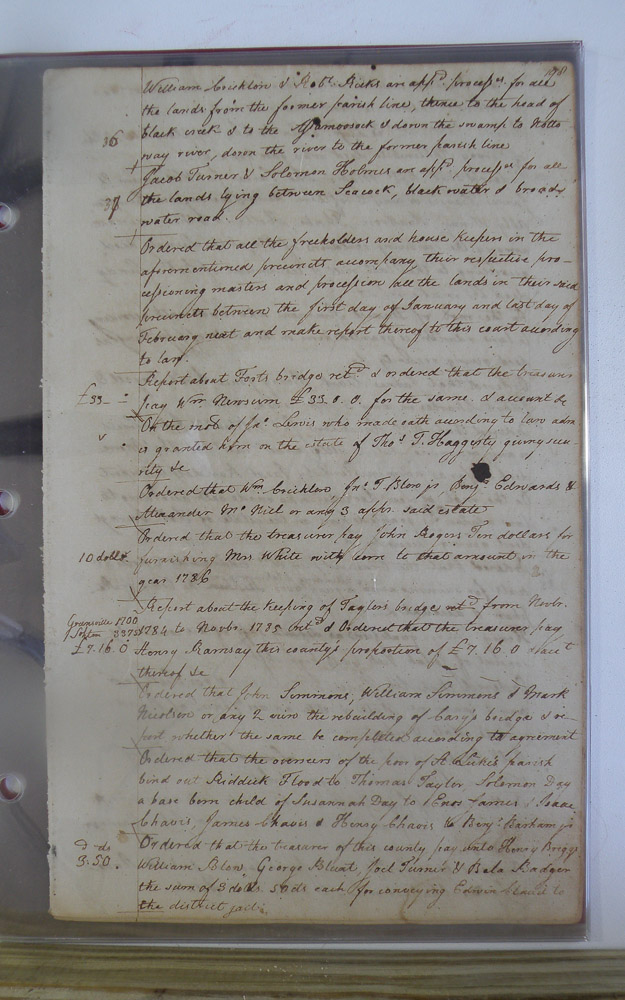 William Crichlow & Robt. Ricks are appd. processrs. for all
the lands from the former parish line, thence to the head of
36 black creek & to the & down the swamp to Notto
way river, down the river to the former parish line
Jacob Turner & Solomon Holmes are appd. processrs. for all
37 the lands lying between Seacock, black water & broad
water road.
Ordered that all the freeholders and house keepers in the
aforementioned precincts accompany their respective pro-
cessioning masters and procession all the lands in their said
precincts between the first day of January and last day of
February next and make report thereof to this court according
to law.
Report about Forts bridge retd. & ordered that the treasurer
£33 pay Wm. Newsum £33.0.0. for the same. & account &c
On the mot. of Jno. Lewis who made oath according to law adm
is granted him on the estate of Thos. T. Haggerty giving secu-
rity &c
Ordered that Wm. Crichlow, Jno. T. Blow jr, Benj. Edwards &
Alexander Mc. Niel or any 3 appr. said estate
Ordered that the treasurer pay John Rogers Ten dollars for
10 dolls. furnishing Mrs White with corn to that amount in the
year 1786
Report about the keeping of Taylors bridge retd. from Novbr.
Greensville 1700
1784 to Novbr. 1785 & Ordered that the treasurer pay
£7.16.0 Henry Ramsay this county's proportion of £7.16.0
thereof &c
Ordered that John Simmons, William Simmons & Mark
Nicolson or any 2 view the rebuilding of Cary's bridge & re-
port whether the same be completed according to agreement
Ordered that the overseers of the poor of St. Lukes parish
bind out Riddick Flood to Thomas Taylor, Solomon Day
a base born child of Susannah Day to Enos James, Isaac
Chavis, James Chavis & Henry Chavis to Benj. Barham jr
Ordered that the treasurer of this county pay unto Henry Briggs
3.50. William Blow, George Blunt, Joel Turner & Bala Badger
the sum of 3 dolls. 50 ds each for conveying Edwin to
the district jail.